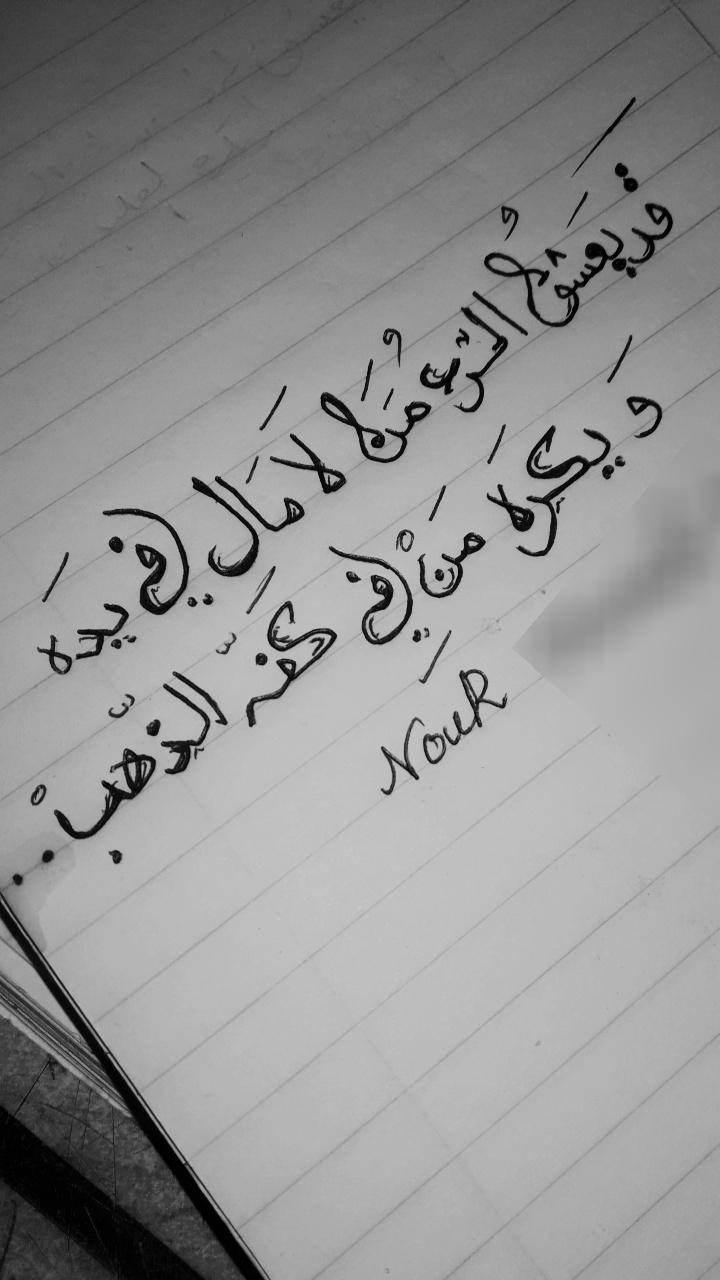 قد يَعشقُ المرّء مَنُ لَا مَال في يدَه
وَ يكرَه مَنْ في كَفّه الذّهبْ..
NouR